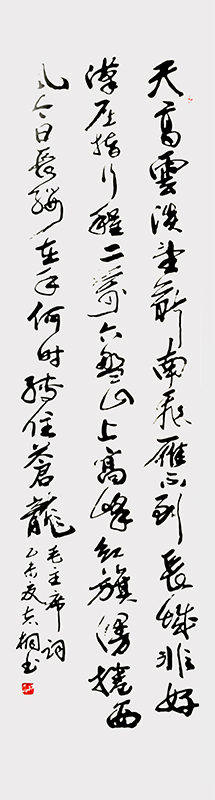 天高雲淡望斷南飛雁不到長城非好
漢屈指行程二萬六盤山上高峰紅旗漫捲西
風今日長纓在手何時縛住蒼龍
毛主席詞
乙未夏志桐书